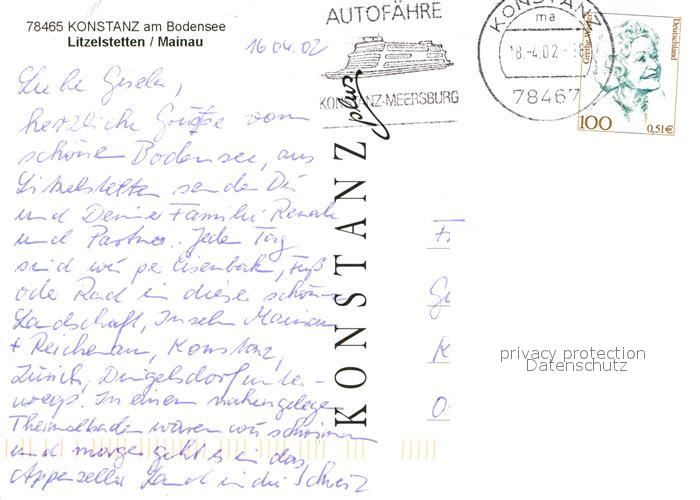 78465 KONSTANZ am Bodensee
Litzelstetten / Mainau
16.04.02
AUTOFÄHRE
KONSTANZ-MEERSBURG
KONSTANZ
ma
18.-4.02
78467
Deutschland
100
0,51€
Liebe Gisela,
herzliche Grüße vom
schönen Bodensee, aus
Litzelstetten senden Dir
und Deiner Familie Renate
und Partner. Jeden Tag
sind wir per Eisenbah, Fuß
oder Rad in dieser schönen
Landschaft, Inseln Mainau
+ Reichenau, Konstanz,
Zürich, Dingelsdorf unter-
wegs. In einem nahegelege
Thermalbaden waren wir schwimmen
und morgen geht es in das
Appenzeller Land in die Schweiz
KONSTANZ
privacy protection
Datenschutz